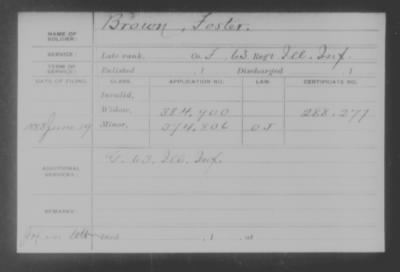 NAME OF SOLDIER: Brown, Foster.
SERVICE: Late rank, Co. F, 63 Reg't Ill. Inf.
TERM OF SERVICE: Enlisted , 1 Discharged , 1
DATE OF FILING. CLASS. APPLICATION NO. LAW. CERTIFICATE NO.
Invalid,
Widow, 384.900 288.277
June 19 Minor, 574.806
ADDITIONAL SERVICES: G. 63, Ill. Inf.
REMARKS:
, 1 , at